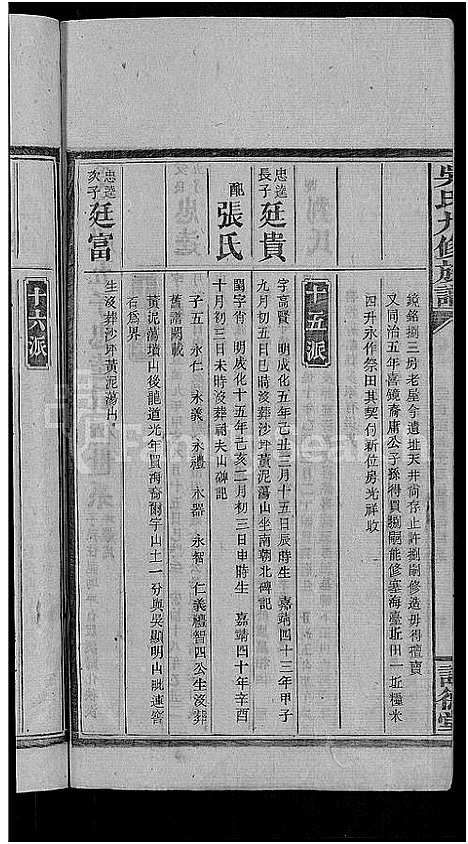 吳氏九修族譜
鏡銘捌三房老屋今遺址天井尚存止許捌嗣修造毋得擅賣
又同治五年喜鏡裔庸公子孫得買捌嗣能修塞海臺坵田一坵糧米
四升永作祭田其契付新位房光祥收
十五派
忠達長子廷貴
字高賢 明成化五年己丑三月十五日辰時生 嘉靖四十三年甲子
九月初五日巳時沒葬沙坪黃泥蕩山坐南朝北碑記
配張氏
閨字肖 明成化十五年己亥二月初三日申時生 嘉靖四十年辛酉
十月初三日未時沒葬祔夫山碑記
子五 永仁 永義 永禮 永器 永智 仁義禮智四公生沒葬
舊譜闕載
黃泥蕩墳山後龍道光年置海喬爾字山土一分與吳顯明山毗連窖
石為界
忠達次子廷富
生沒葬沙坪黃泥蕩山
十六派